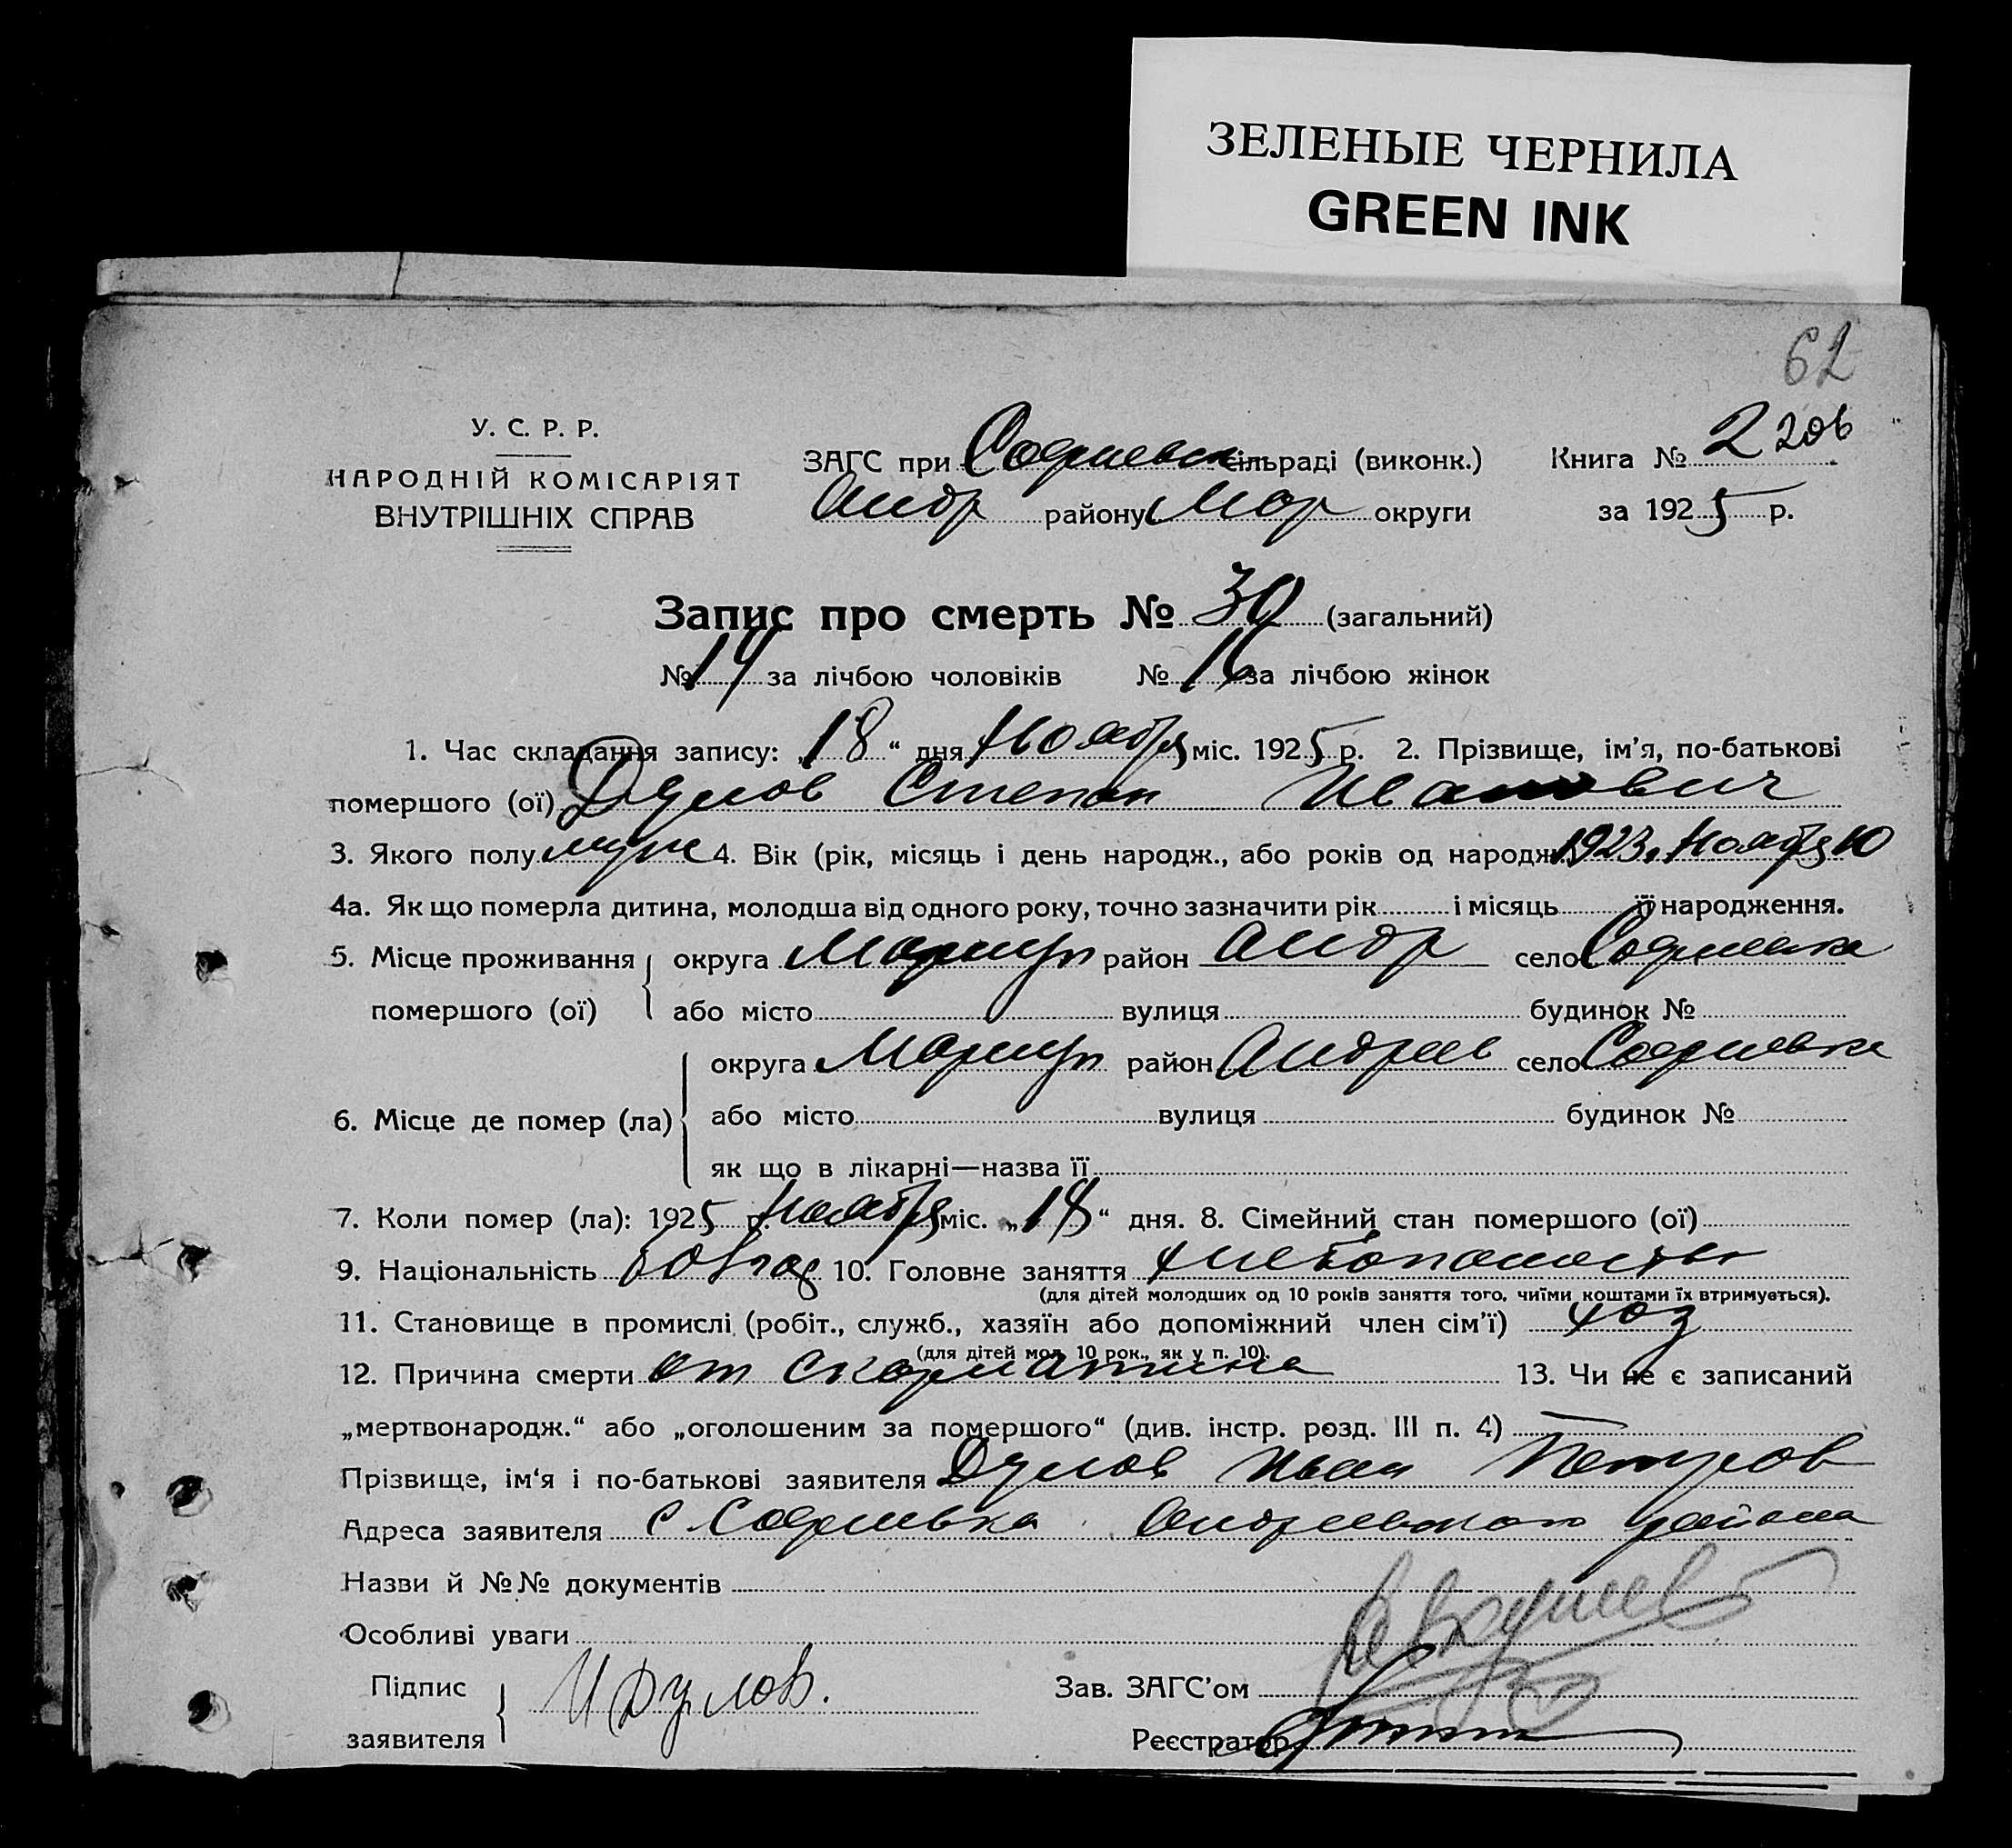 ЗЕЛЕНЫЕ ЧЕРНИЛА
GREEN INK
62
У. С. Р. Р.
НАРОДНІЙ КОМІСАРІЯТ
ВНУТРІШНІХ СПРАВ
ЗАГС при Софиевск сільраді (виконк.)
Андр району Мар округи
Книга № 2
за 1925 р.
Запис про смерть № 30 (загальний)
№ 14 за лічбою чоловіків № 16 за лічбою жінок
1. Час складання запису: „18“ дня Ноября міс. 1925 р. 2. Прізвище, ім’я, по-батькові
помершого (ої) Дулов Степан Иванович
3. Якого полу муж 4. Вік (рік, місяць і день народж., або років од народж. 1923. Ноября 10
4а. Як що померла дитина, молодша від одного року, точно зазначити рік і місяць її народження.
5. Місце проживання помершого (ої) округа Мариуп район Андр село Софиевка
або місто вулиця будинок №
6. Місце де помер (ла) округа Мариуп район Андреев село Софиевка
або місто вулиця будинок №
як що в лікарні—назва її
7. Коли помер (ла): 1925 р. Ноября міс. „18“ дня. 8. Сімейний стан помершого (ої)
9. Національність 10. Головне заняття хлебопашество
(для дітей молодших од 10 років заняття того, чиїми коштами їх втримується).
11. Становище в промислі (робіт., служб., хазяїн або допоміжний член сім’ї) хоз
(для дітей мол. 10 рок., як у п. 10).
12. Причина смерти от скарлатина 13. Чи не є записаний
„мертвонародж.“ або „оголошеним за помершого“ (див. інстр. розд. III п. 4) —
Прізвище, ім‘я і по-батькові заявителя Дулов Иван Петров
Адреса заявителя с Софиевка Андреевского района
Назви й №№ документів
Особливі уваги
Підпис заявителя И Дулов.
Зав. ЗАГС’ом
Реєстратор